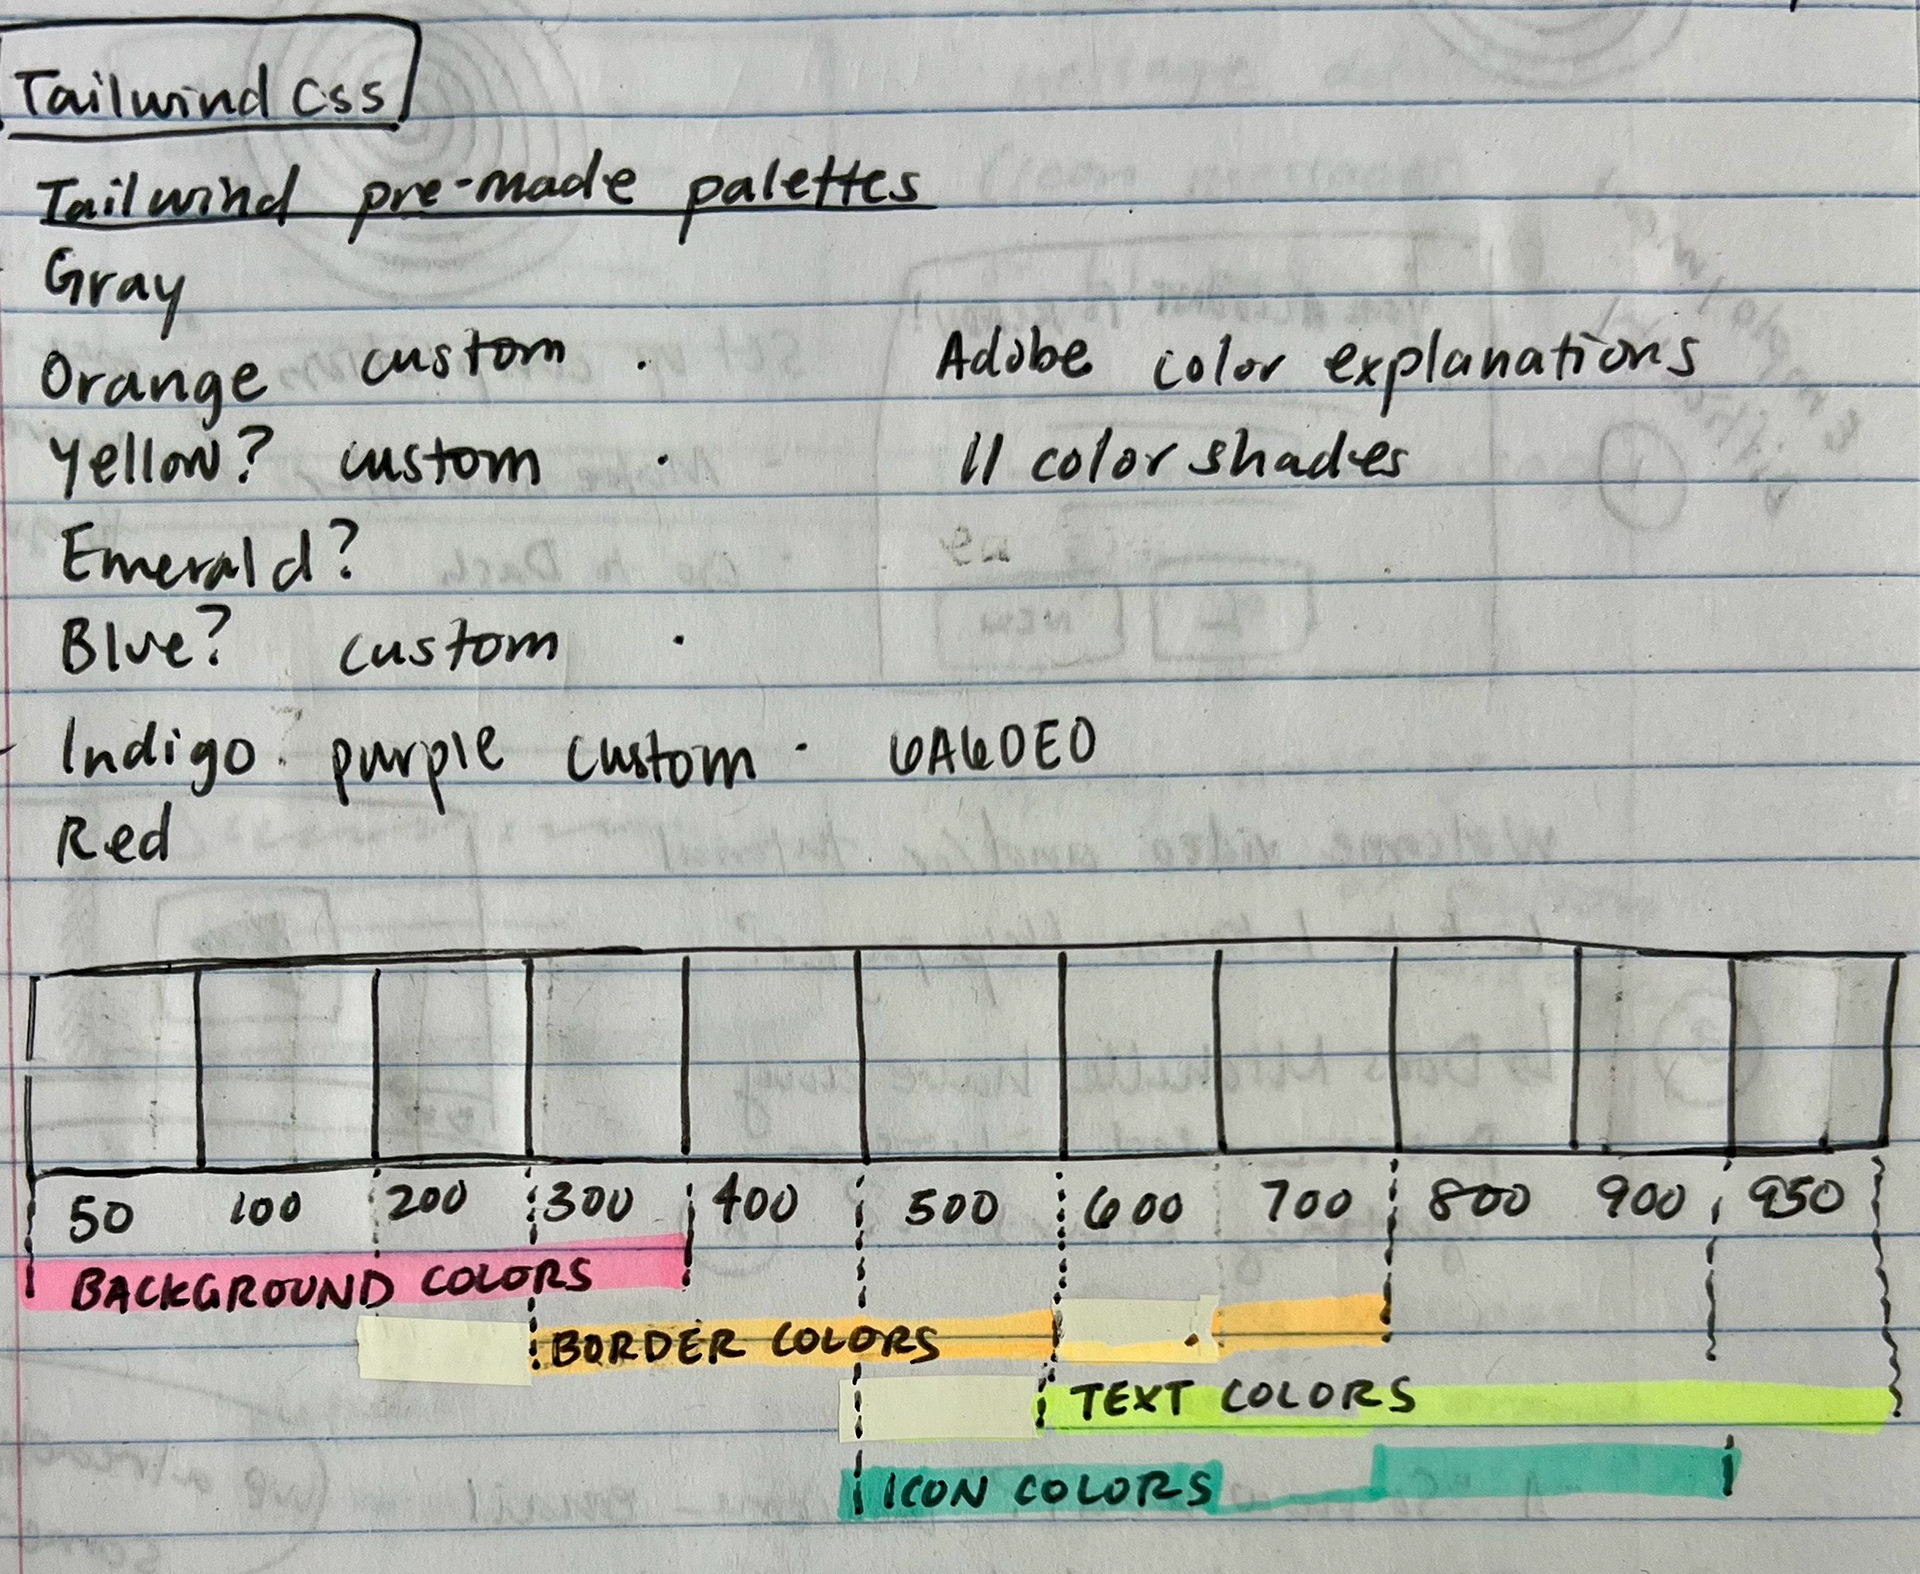 Tailwind CSS
Tailwind pre-made palettes
Gray
Orange custom . Adobe color explanations
Yellow? custom . 11 color shades
Emerald?
Blue? custom .
Indigo. purple custom . 6A60E0
Red
50 100 200 300 400 500 600 700 800 900 950
BACKGROUND COLORS
BORDER COLORS
TEXT COLORS
ICON COLORS